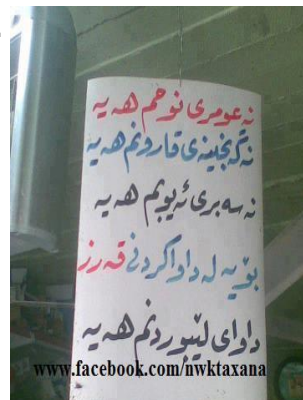 نە عومری نوحم هەیە
نە گەنجینەی قارونم هەیە
نە سەبری ئەیوبم هەیە
بۆیە لە داواکردنی قەرز
داوای لێبوردنم هەیە
www.facebook.com/nwktaxana